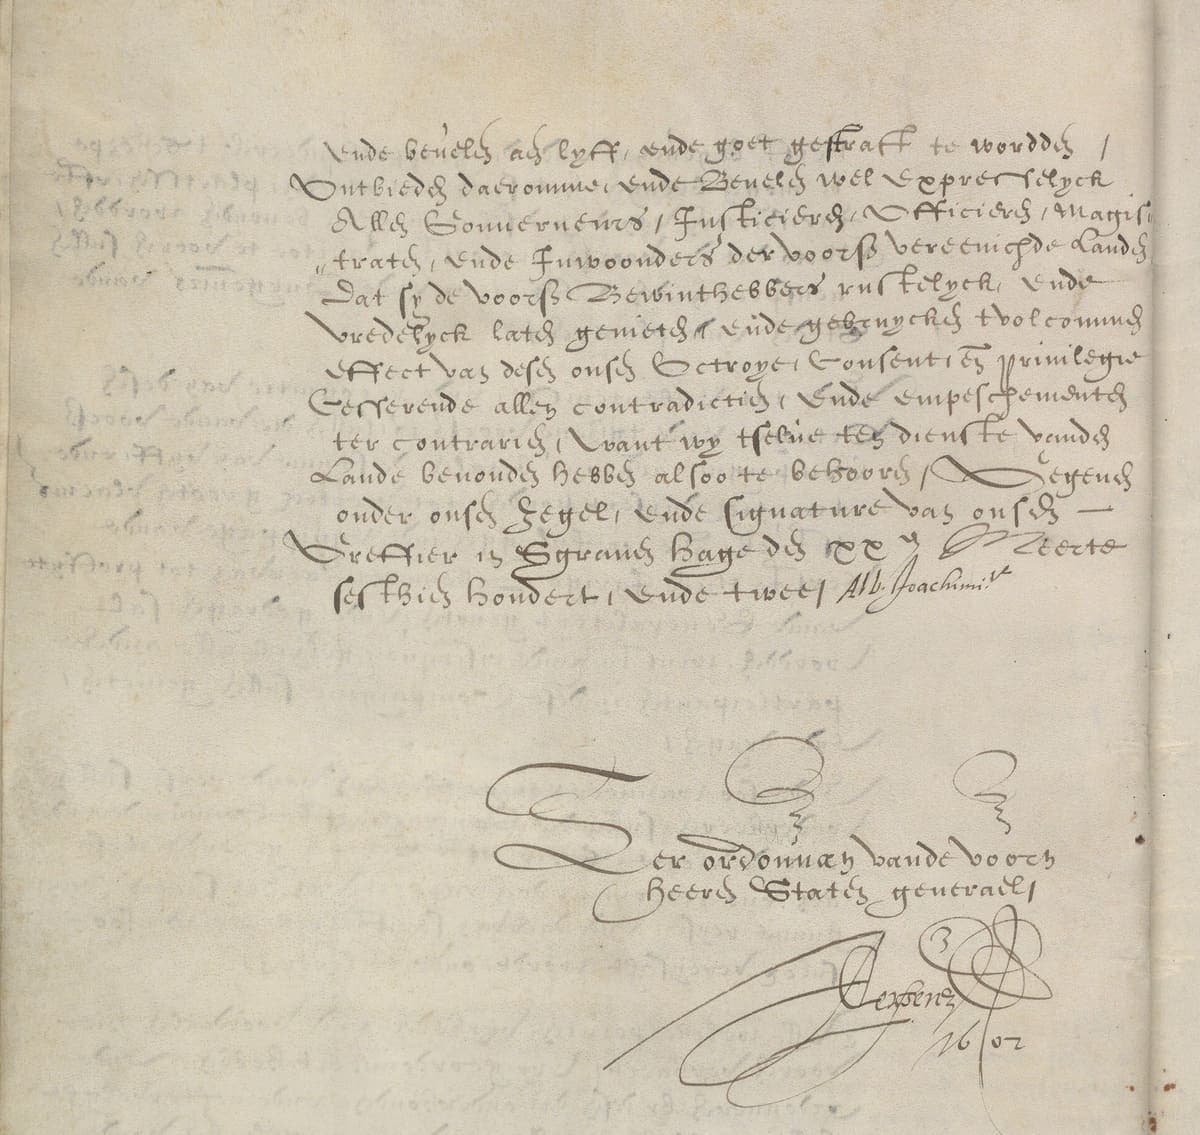 ende bevelen aen lyff, ende goet gestraft te wordden /
Ontbieden daeromme, ende Bevelen wel expresselyck
Allen Gouverneurs, Justicieren, Officieren, Magis=
"traten, ende Inwoonders der voorsz vereenichde Landen
Dat sy de voorsz Bewinthebbers rustelyck, ende
vredelyck laten genieten, ende gebruycken tvolcommen
effect van desen onsen Octroye, Consent, en privilegie
Cesserende allen contradictien, Ende empeschementen
ter contrarien, Want wy tselve ten dienste vanden
Lande bevonden hebben alsoo te behooren, Gegeven
onder onsen Zegel, ende signature van onsen —
Greffier in Sgraven Hage den xx n Meerte
sesthien hondert, ende twee / Alb. Joachimi vt
Ter ordonnan vande voorn
Heeren Staten generael /
Aerssen
1602